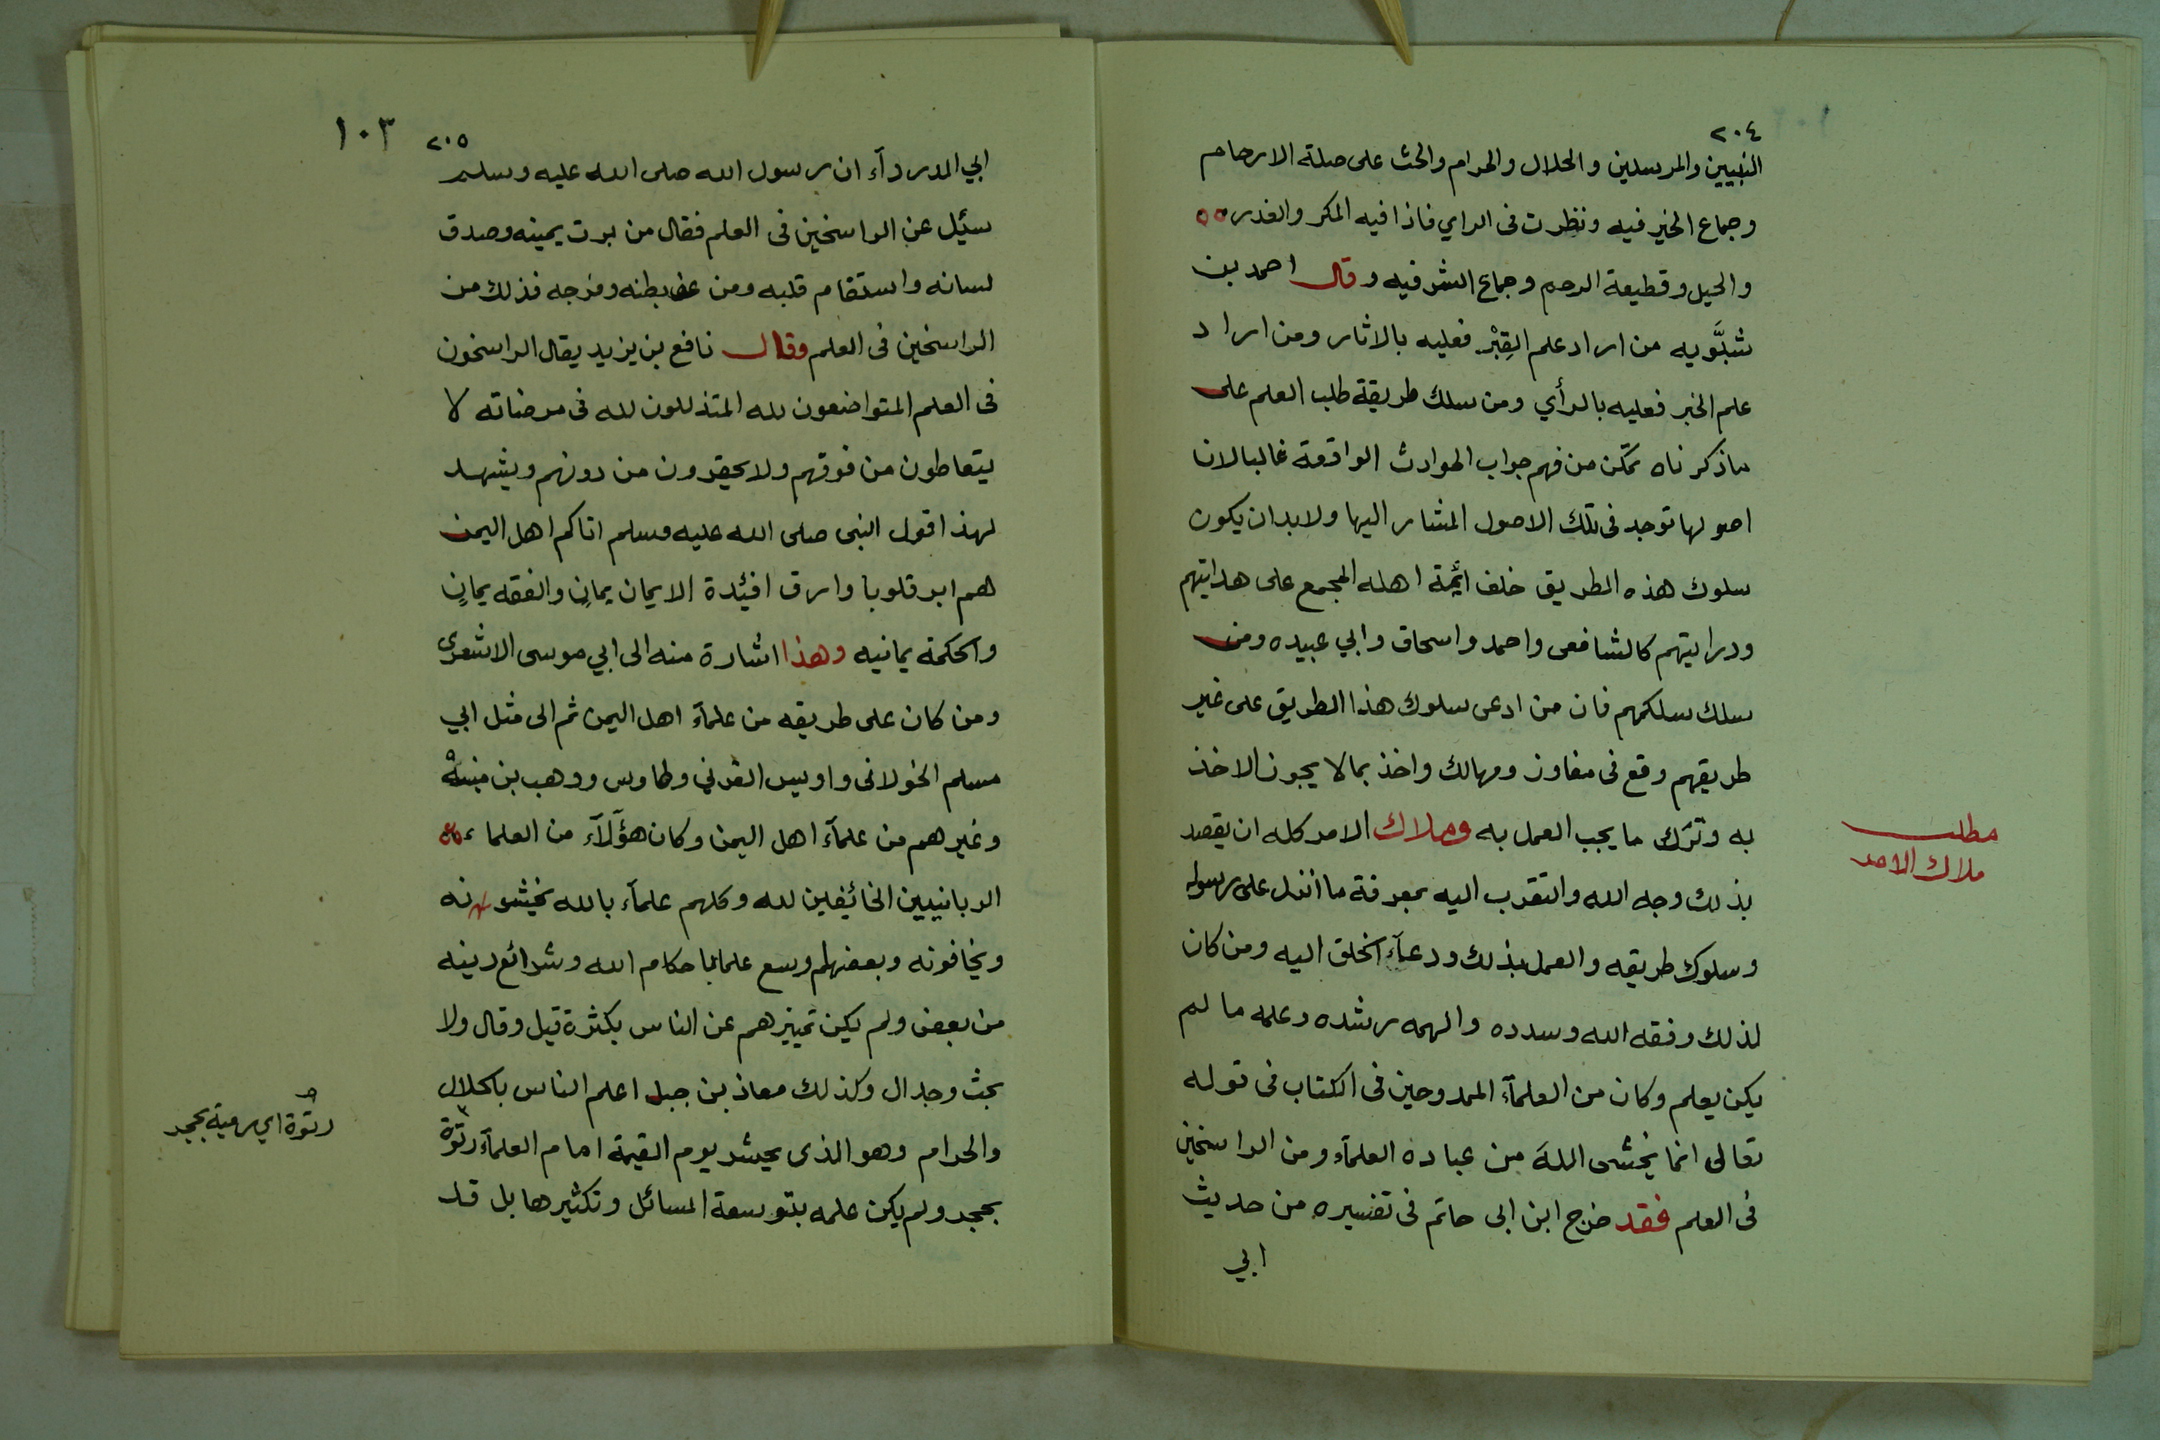 ٢٠٤
النبيين والمرسلين والحلال والحرام والحث على صلة الارحام
وجماع الخير فيه ونظرت فى الراي فاذا فيه المكر والغدر
والحيل وقطيعة الرحم وجماع الشر فيه وقال احمد بن
شبَّويه من اراد علم القِبْر فعليه بالاثار ومن اراد
علم الخبر فعليه بالرأي ومن سلك طريقة طلب العلم على
ماذكرناه تمكن من فهم جواب الحوادث الواقعة غالبا لان
اصولها توجد فى تلك الاصول المشار اليها ولا بد ان يكون
سلوك هذه الطريق خلف ائمة اهله المجمع على هدايتهم
ودرايتهم كالشافعى واحمد واسحاق وابي عبيده ومن
سلك سلكمهم فان من ادعى سلوك هذا الطريق على غير
طريقهم وقع فى مفاوز ومهالك واخذ بما لا يجوز الاخذ
به وترك ما يجب العمل به وملاك الامر كله ان يقصد
بذلك وجه الله والتقرب اليه بمعرفة ما انزل على رسوله
وسلوك طريقه والعمل بذلك ودعآء الخلق اليه ومن كان
لذلك وفقه الله وسدده والهمه رشده وعلمه ما لم
يكن يعلم وكان من العلمآء الممدوحين فى الكتاب فى قوله
تعالى انما يخشى اللهَ من عباده العلمآء ومن الراسخين
فى العلم فقد خرج ابن ابى حاتم فى تفسيره من حديث
ابي
مطلب
ملاك الامر
٢٠٥
١٠٣
ابي الدردآء ان رسول الله صلى الله عليه وسلم
سئل عن الراسخين فى العلم فقال من برت يمينه وصدق
لسانه واستقام قلبه ومن عف بطنه وفرجه فذلك من
الراسخين فى العلم وقال نافع بن يزيد يقال الراسخون
فى العلم المتواضعون لله المتذللون لله فى مرضاته لا
يتعاطون من فوقهم ولا يحقرون من دونهم ويشهد
لهذا قول النبى صلى الله عليه وسلم اتاكم اهل اليمن
هم ابر قلوبا وارق افئدة الايمان يمانٍ والفقه يمانٍ
والحكمة يمانيه وهذا اشارة منه الى ابي موسى الاشعرى
ومن كان على طريقه من علمآء اهل اليمن ثم الى مثل ابي
مسلم الخولانى واويس القرني وطاوس ووهب بن منبه
وغيرهم من علمآء اهل اليمن وكان هؤلآء من العلماء
الربانيين الخائفين لله وكلهم علمآء بالله يخشونه
ويخافونه وبعضهم اوسع علما باحكام الله وشرائع دينه
من بعض ولم يكن تميزهم عن الناس بكثرة قيل وقال ولا
بحث وجدال وكذلك معاذ بن جبل اعلم الناس بالحلال
والحرام وهو الذى يحشر يوم القيمة امام العلمآء رتوة
بحجر ولم يكن علمه بتوسعة المسائل وتكثيرها بل قد
رتوة اي رمية بحجر